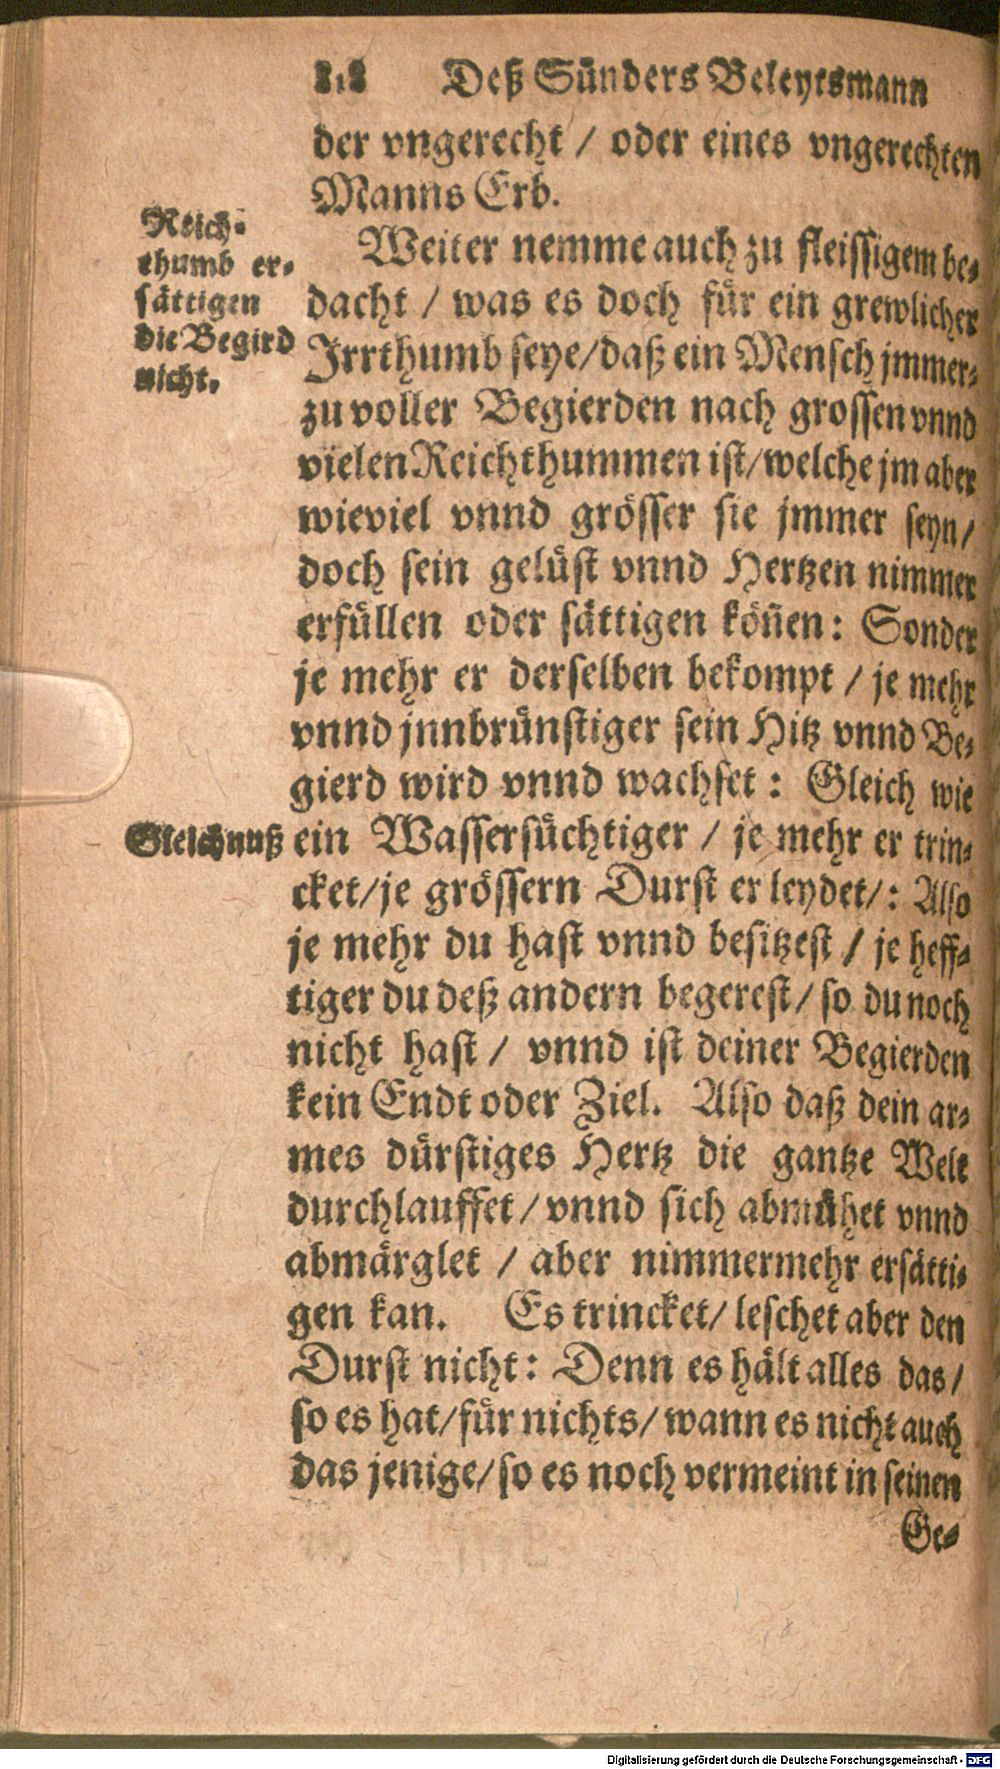 Deß Sünders Beleytsmann
der vngerecht / oder eines vngerechten
Manns Erb.
Reich-
thumb er-
sättigen
die Begird
nicht.
Weiter nemme auch zu fleissigem be-
dacht / was es doch für ein grewlicher
Irrthumb seye/daß ein Mensch jmmer-
zu voller Begierden nach grossen vnnd
vielen Reichthummen ist/welche jm aber
wieviel vnnd grösser sie jmmer seyn/
doch sein gelüst vnnd Hertzen nimmer
erfüllen oder sättigen köñen: Sonder
je mehr er derselben bekompt / je mehr
vnnd jnnbrünstiger sein Hitz vnnd Be-
gierd wird vnnd wachset: Gleich wie
Gleichnuß
ein Wassersüchtiger / je mehr er trin-
cket/je grössern Durst er leydet/: Also
je mehr du hast vnnd besitzest / je heff-
tiger du deß andern begerest/ so du noch
nicht hast / vnnd ist deiner Begierden
kein Endt oder Ziel. Also daß dein ar-
mes dürstiges Hertz die gantze Welt
durchlauffet / vnnd sich abmühet vnnd
abmärglet / aber nimmermehr ersätti-
gen kan. Es trincket/ leschet aber den
Durst nicht: Denn es hält alles das/
so es hat/für nichts/ wann es nicht auch
das jenige/so es noch vermeint in seinen
Ge-
Digitalisierung gefördert durch die Deutsche Forschungsgemeinschaft - DFG